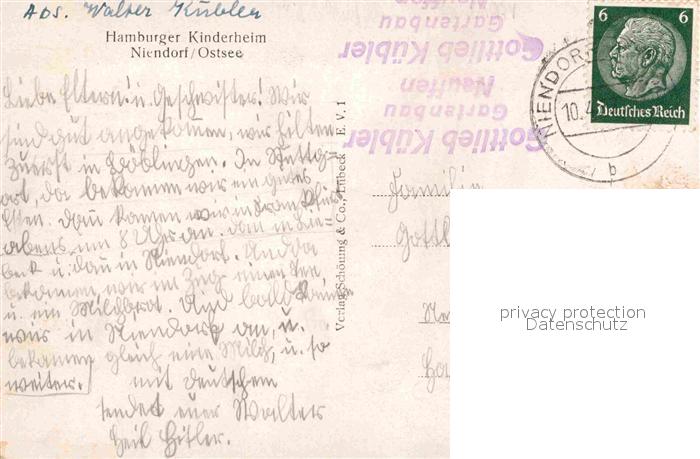 Abs. Walter Kübler
Hamburger Kinderheim
Niendorf/Ostsee
Liebe Eltern! u. Geschwister! Wir
sind gut angekommen, wir hilten
zuerst in Böblingen. In Stuttg-
art, da bekamen wir ein gutes
Essen. Dan kamen wir in Frankfurt
abends um 8 Uhr an. dan in Lü-
beck u. dan in Niendorf. Und da
bekamen wir im Zug einen Tee
u. ein Milchbrot. Und bald kamen
wir in Niendorf an, u.
bekamen gleich eine Milch, u. so
weiter.
mit deutschem
sendet euer Walter
Heil Hitler.
Verlag Schöning & Co., Lübeck E. V. 1
Gottlieb Kübler
Gartenbau
Neuffen
Gottlieb Kübler
Gartenbau
Neuffen
6 6
Deutsches Reich
NIENDORF
10.4
b
Familie
Gottl
Ne
privacy protection
Datenschutz